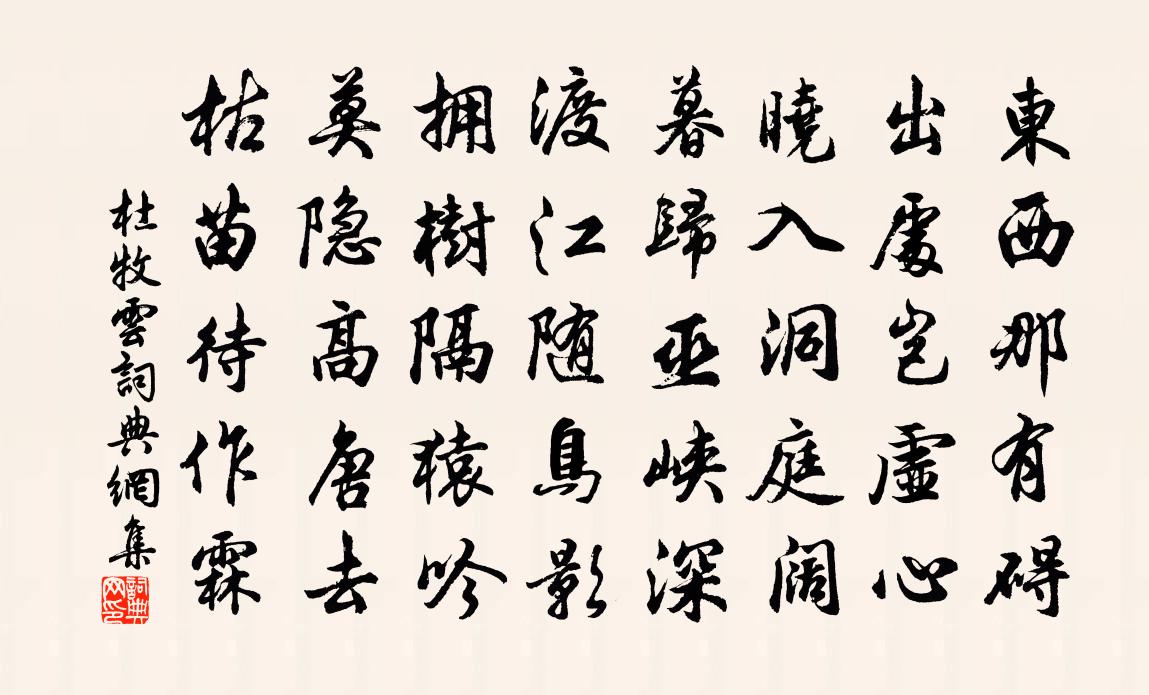 東西那有碍
出處豈虛心
曉入洞庭闊
暮歸巫峽深
渡江随鳥影
拥樹隔猿吟
莫隐高唐去
枯苗待作霖
杜牧雲詞典網集
詞典
网印